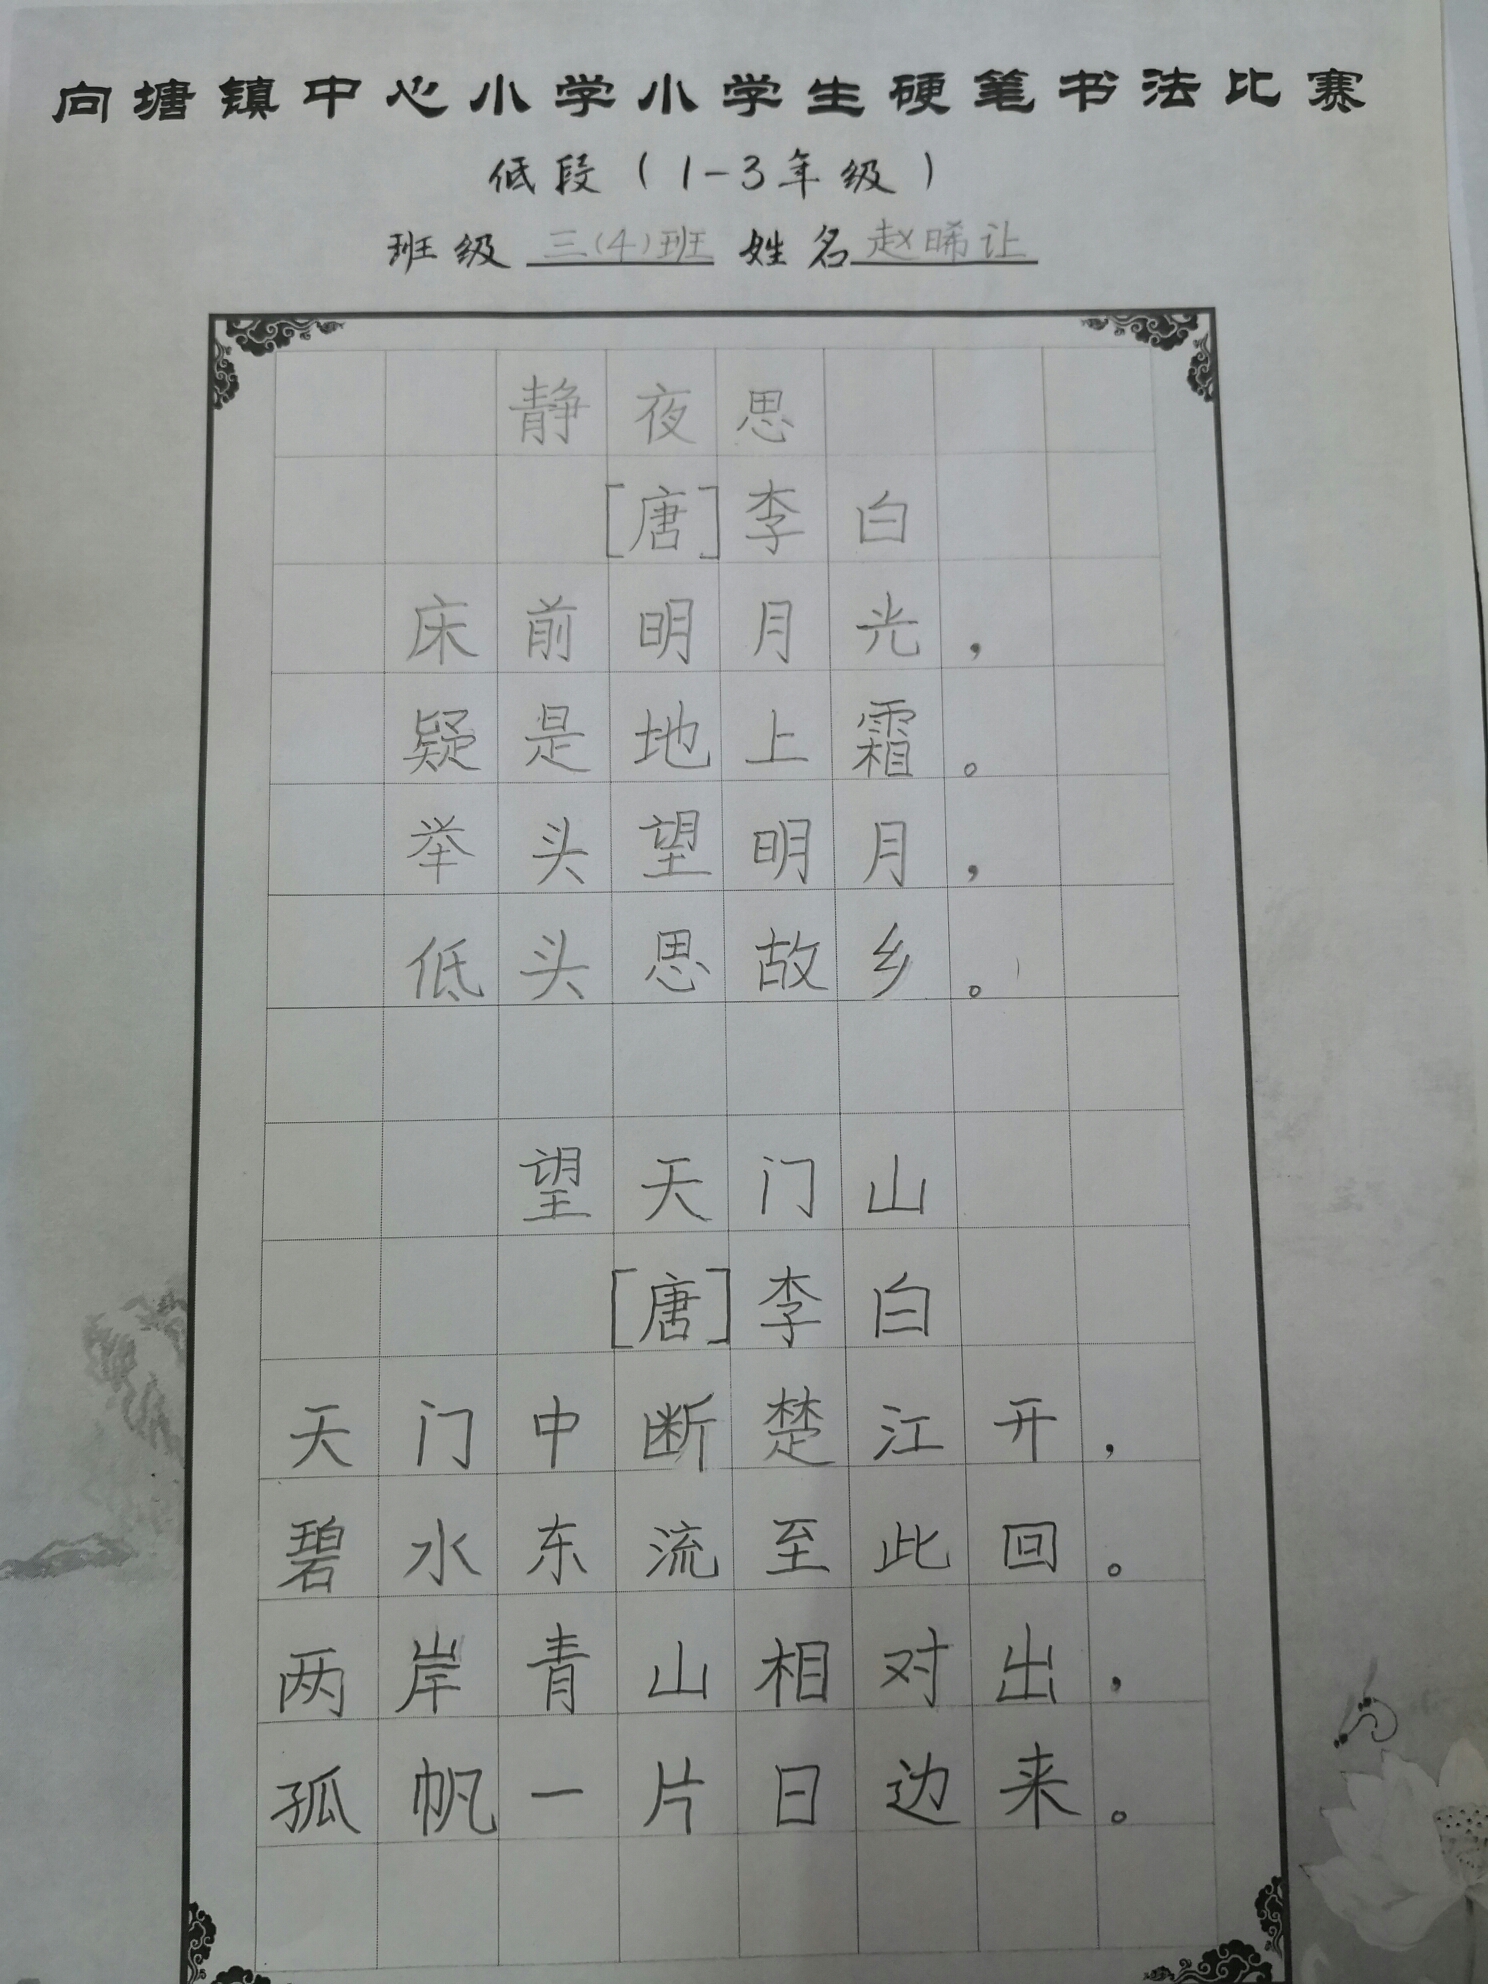 向塘镇中心小学小学生硬笔书法比赛
低段（1-3年级）
班级 三(4)班 姓名 赵晞让
静夜思
[唐]李白
床前明月光，
疑是地上霜。
举头望明月，
低头思故乡。
望天门山
[唐]李白
天门中断楚江开，
碧水东流至此回。
两岸青山相对出，
孤帆一片日边来。